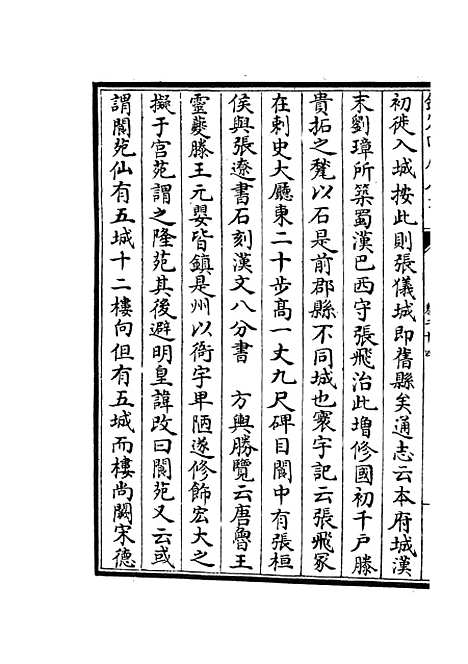 初徙入城按此則張儀城即舊縣矣通志云本府城漢
末劉璋所築蜀漢巴西守張飛治此増修國初千戸滕
貴拓之甃以石是前郡縣不同城也寰宇記云張飛冢
在刺史大廳東二十步髙一丈九尺碑目閬中有張桓
侯與張遼書石刻漢文八分書　方輿勝覽云唐魯王
靈䕫滕王元嬰皆鎮是州以衙宇卑陋遂修飾宏大之
擬于宫苑謂之隆苑其後避明皇諱改曰閬苑又云或
謂閬苑仙有五城十二樓向但有五城而樓尚闕宋德